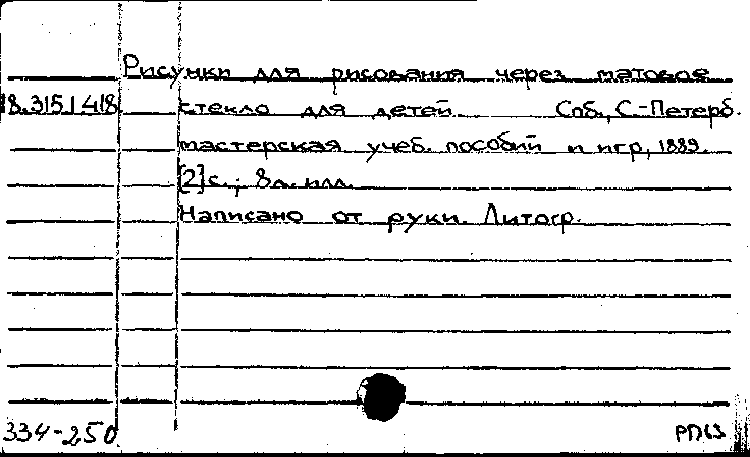 Рисунки для рисования через матовое
18.315.1.418 стекло для детей. Спб., С.-Петерб.
мастерская учеб. пособий и игр, 1889.
[2] с.; 8 л. илл.
Написано от руки. Литогр.
334-250